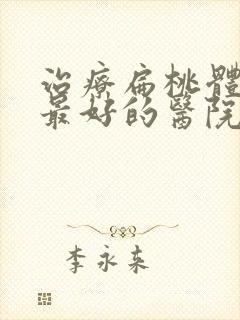 治療扁桃體
最好的醫院
李永来